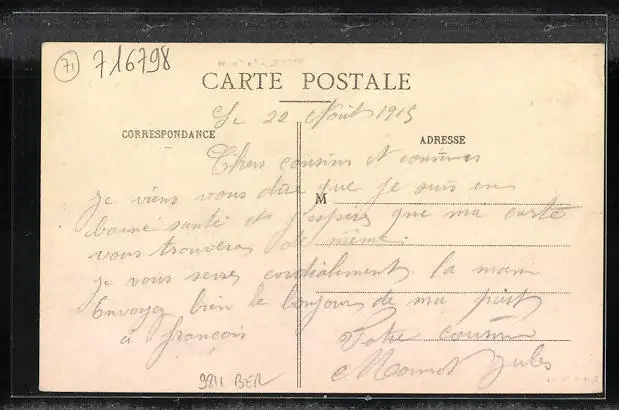 71
716798
CARTE POSTALE
Le 22 Août 1915
CORRESPONDANCE
ADRESSE
Chers cousins et cousines
je viens vous dire que je suis en
M
bonne santé et j'espère que ma carte
vous trouvera de même
je vous serre cordialement la main
Envoyez bien le bonjour de ma part
à françois
Votre cousin
Jules
9811 BER